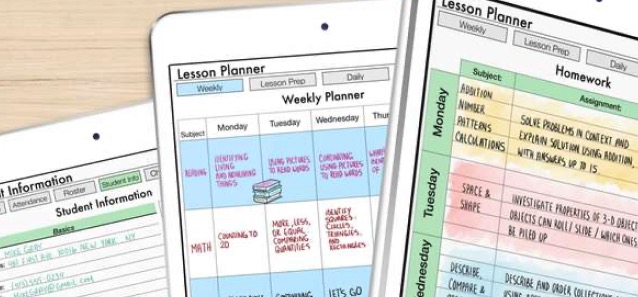 nt Information
Attendance
Roster
Student Info
Student Information
Basics
MIKE GRAY
NEW YORK, NY
Lesson Planner
Weekly
Lesson Prep
Daily
Weekly Planner
Subject
Monday
Tuesday
Wednesday
Thur
READING
IDENTIFYING
LIVING
AND NONLIVING
THINGS
USING PICTURES
TO READ WORDS
CONTINUING
USING PICTURES
TO READ WORDS
OF
MATH
COUNTING TO
20
MORE, LESS,
OR EQUAL,
COMPARING
QUANTITIES
IDENTIFY
SQUARES,
CIRCLES,
TRIANGLES,
AND
RECTANGLES
CONTINUING
LET'S GO
Lesson Planner
Weekly
Lesson Prep
Daily
Homework
Subject:
Assignment:
Monday
ADDITION
NUMBER
PATTERNS
CALCULATIONS
SOLVE PROBLEMS IN CONTEXT AND
EXPLAIN SOLUTION USING ADDITION,
WITH ANSWERS UP TO 15
Tuesday
SPACE &
SHAPE
INVESTIGATE PROPERTIES OF 3-D OBJECT
OBJECTS CAN ROLL / SLIDE / WHICH ONES
BE PILED UP
ednesday
DESCRIBE,
COMPARE &
DESCRIBE AND ORDER COLLECTIONS